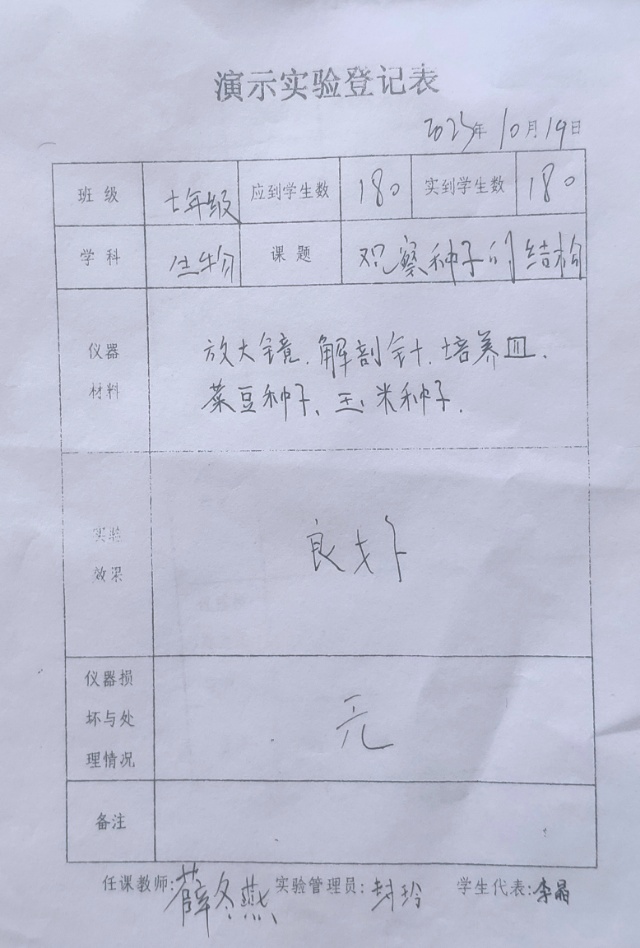 演示实验登记表
2023年10月19日
班级 七年级 应到学生数 180 实到学生数 180
学科 生物 课题 观察种子的结构
仪器材料
放大镜.解剖针.培养皿.
菜豆种子、玉米种子.
实验效果 良好
仪器损坏与处理情况 无
备注
任课教师:薛冬燕 实验管理员:封玲 学生代表:李晶